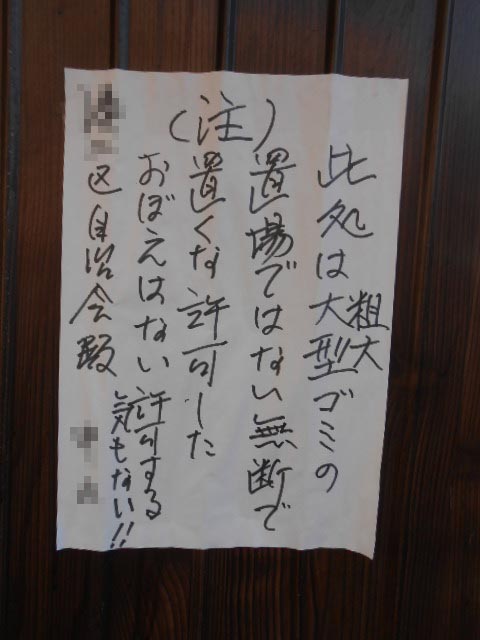 (注)
此処は大型ゴミの
粗大
置場ではない無断で
置くな許可した
おぼえはない許可する
気もない!!
区自治会殿